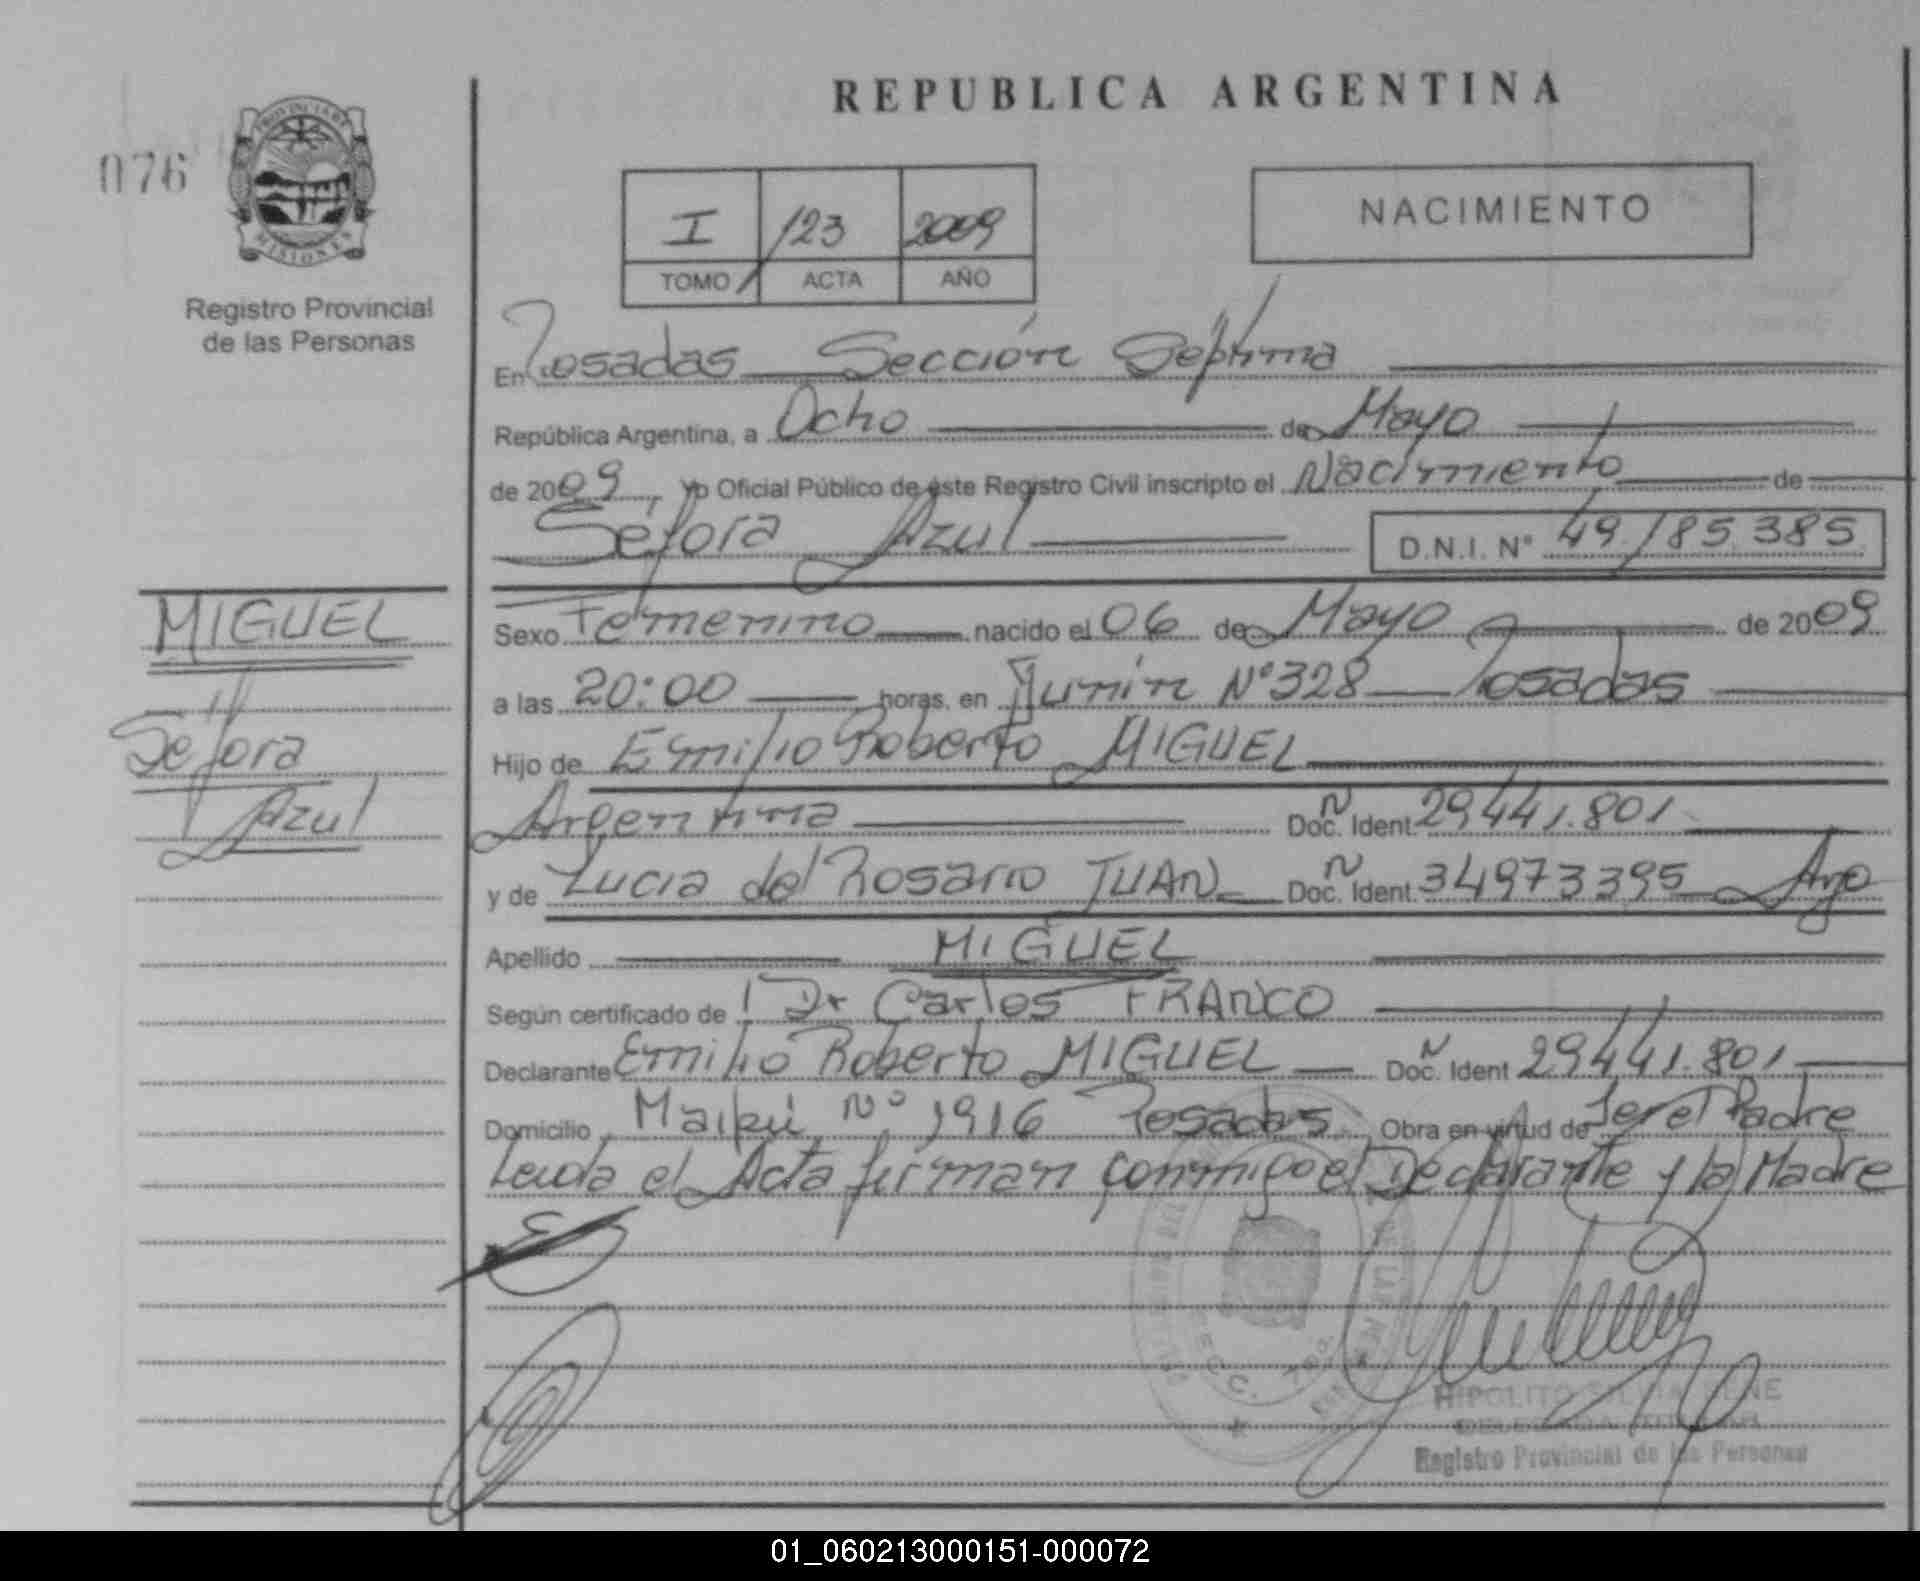 REPUBLICA ARGENTINA
076
PROVINCIA DE
MISIONES
Registro Provincial
de las Personas
I 123 2009
TOMO ACTA AÑO
NACIMIENTO
En Posadas Sección Septima
República Argentina, a Ocho de Mayo
de 2009, Yo Oficial Público de éste Registro Civil inscripto el Nacimiento de
Séfora Azul D.N.I. N° 49.185.385
MIGUEL
Séfora
Azul
Sexo Femenino nacido el 06 de Mayo de 2009
a las 20:00 horas, en Junín N° 328 Posadas
Hijo de Emilio Roberto MIGUEL
Argentina Doc. Ident. 29441.801
y de Lucia del Rosario JUAN Doc. Ident. 34973395 Arg
Apellido MIGUEL
Según certificado de Dr Carlos FRANCO
Declarante Emilio Roberto MIGUEL Doc. Ident 29441.801
Domicilio Maipú N° 1916 Posadas Obra en virtud de Ser el Padre
Leida el Acta firman conmigo el Declarante y la Madre
SECC. 7
HIPOLITO SILVIA RENE
DELEGADA TITULAR
Registro Provincial de las Personas
01_060213000151-000072